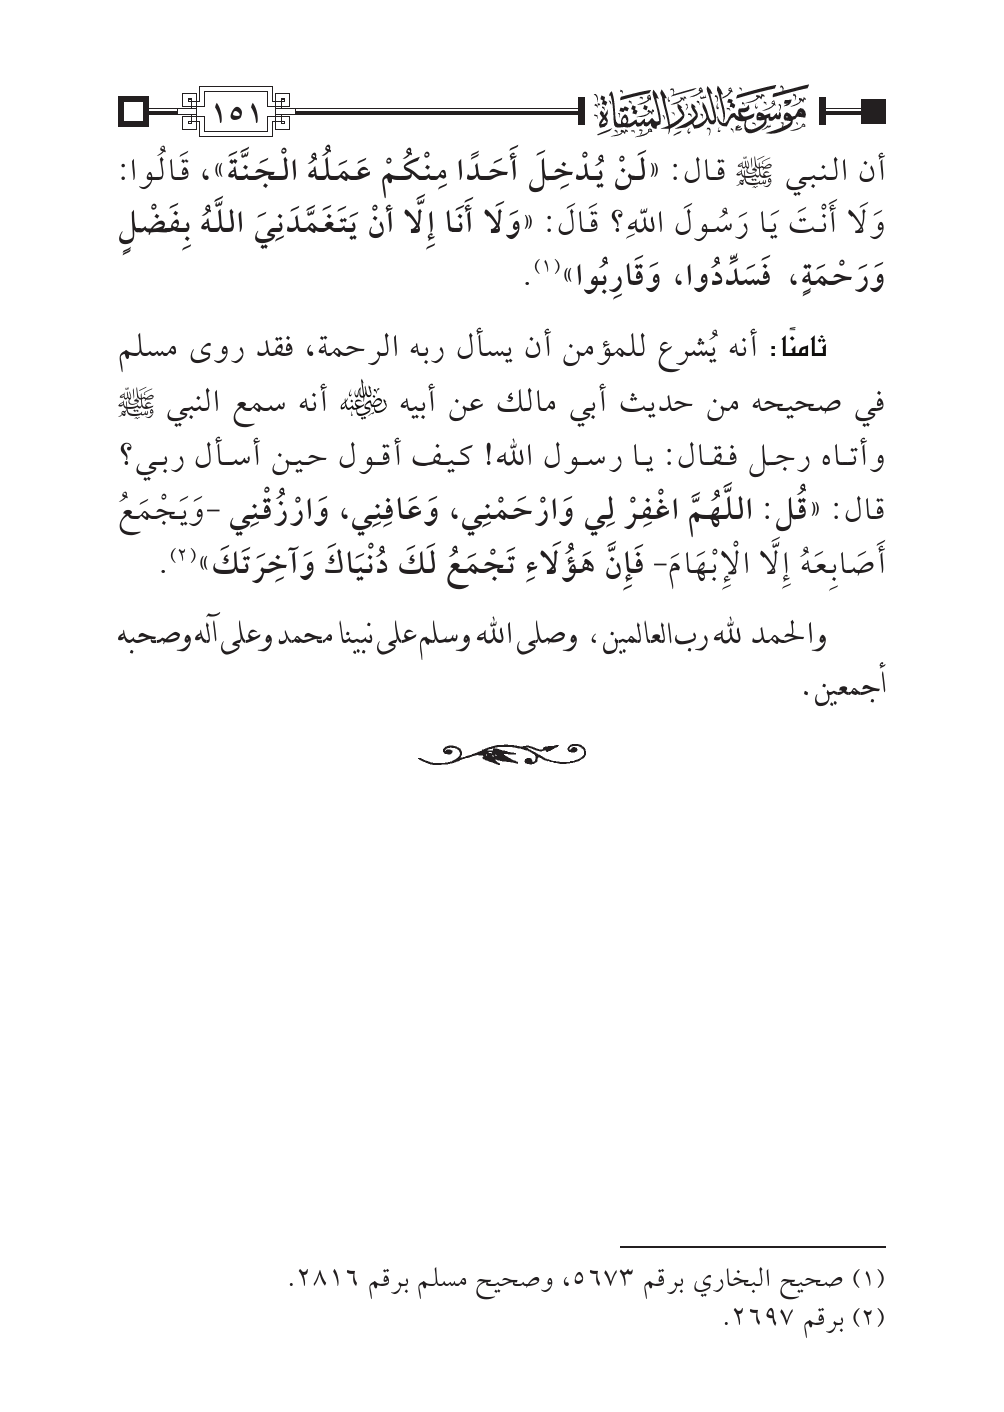 موسوعة الدرر المنتقاة
١٥١
أن النبي ﷺ قال: «لَنْ يُدْخِلَ أَحَدًا مِنْكُمْ عَمَلُهُ الْجَنَّةَ»، قَالُوا:
وَلَا أَنْتَ يَا رَسُولَ اللهِ؟ قَالَ: «وَلَا أَنَا إِلَّا أَنْ يَتَغَمَّدَنِيَ اللَّهُ بِفَضْلٍ
وَرَحْمَةٍ، فَسَدِّدُوا، وَقَارِبُوا»(١).
ثامنًا: أنه يُشرع للمؤمن أن يسأل ربه الرحمة، فقد روى مسلم
في صحيحه من حديث أبي مالك عن أبيه رضي الله عنه أنه سمع النبي ﷺ
وأتاه رجل فقال: يا رسول الله! كيف أقول حين أسأل ربي؟
قال: «قُل: اللَّهُمَّ اغْفِرْ لِي وَارْحَمْنِي، وَعَافِنِي، وَارْزُقْنِي -وَيَجْمَعُ
أَصَابِعَهُ إِلَّا الْإِبْهَامَ- فَإِنَّ هَؤُلَاءِ تَجْمَعُ لَكَ دُنْيَاكَ وَآخِرَتَكَ»(٢).
والحمد لله رب العالمين، وصلى الله وسلم على نبينا محمد وعلى آله وصحبه
أجمعين.
(١) صحيح البخاري برقم ٥٦٧٣، وصحيح مسلم برقم ٢٨١٦.
(٢) برقم ٢٦٩٧.